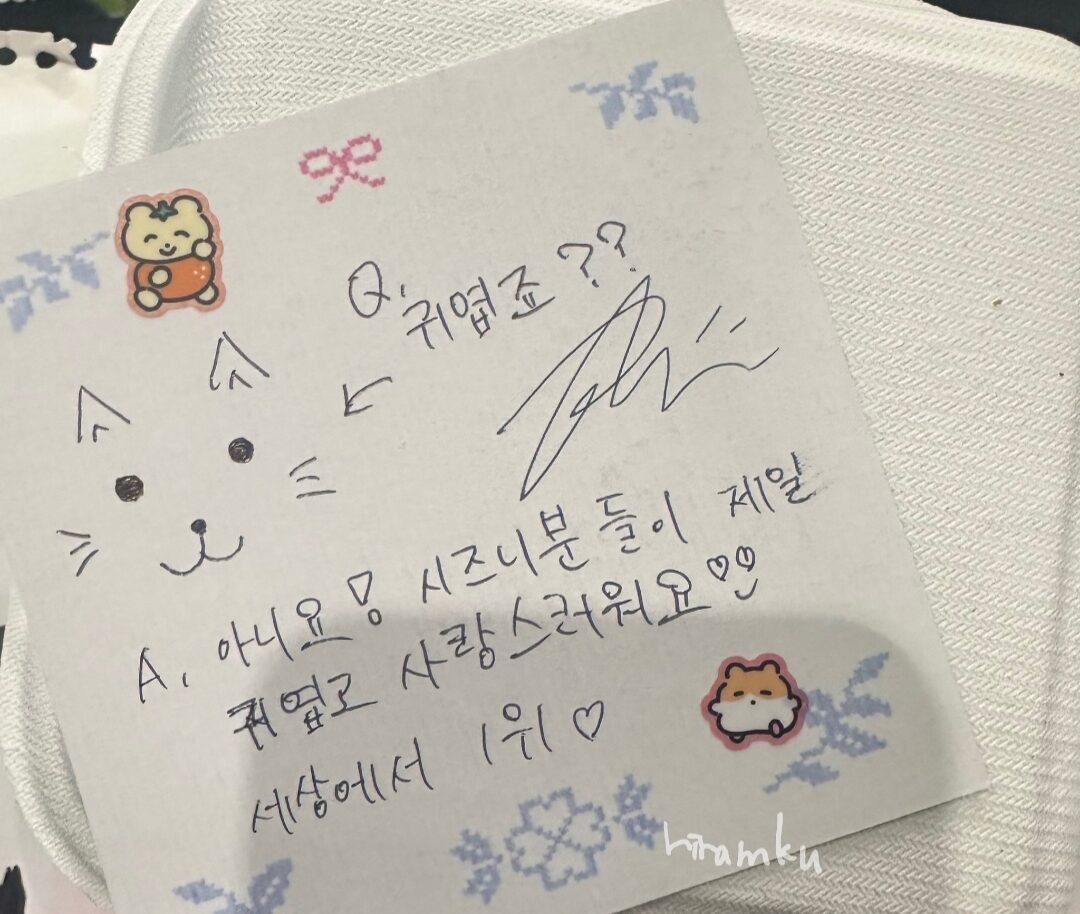 Q. 귀엽죠??
A. 아니요! 시즈니분들이 제일
귀엽고 사랑스러워요♡♡
세상에서 1위♡
hiramku